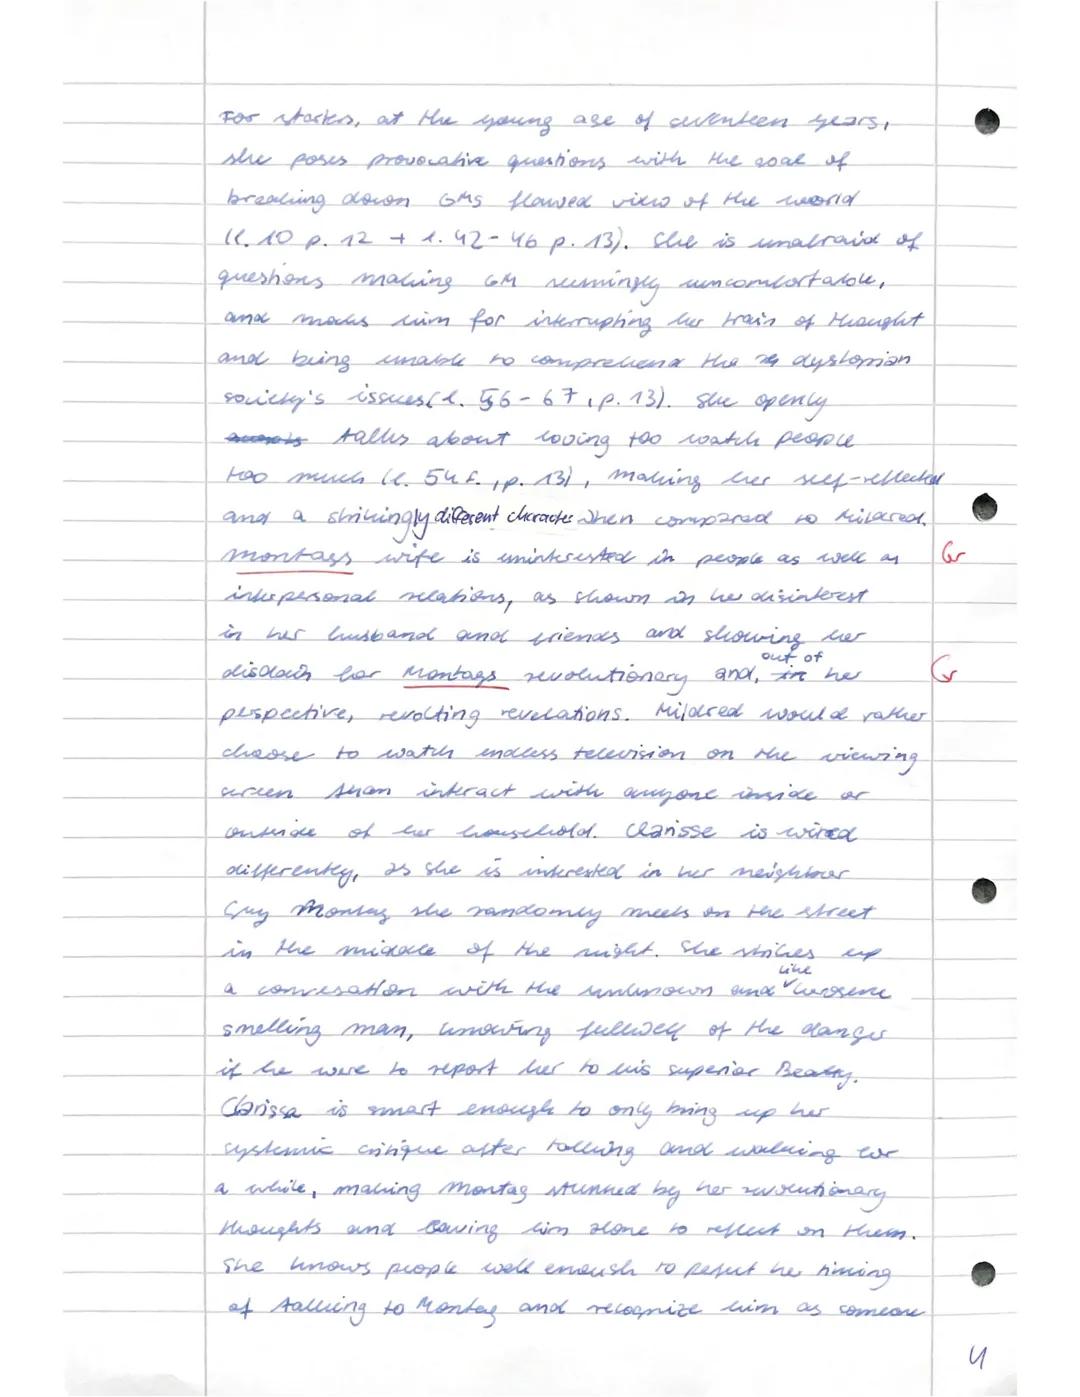 For starters, at the young age of seventeen years,
she poses provocative questions with the goal of
breaking down GMs flawed view of the world
(l. 10 p. 12 + l. 42-46 p. 13). She is unafraid of
questions making GM seemingly uncomfortable,
and mocks him for interrupting her train of thought
and being unable to comprehend the dystopian
society's issues (l. 56-67, p. 13). She openly
talks about loving too watch people
too much (l. 54 f., p. 13), making her self-reflected
and a strikingly different character when compared to Mildred.
Montags wife is uninterested in people as well as Gr
interpersonal relations, as shown in her disinterest
in her husband and friends and showing her
out of
disdain for Montags revolutionary and, in her Gr
perspective, revolting revelations. Mildred would rather
choose to watch endless television on the viewing
screen than interact with anyone inside or
outside of her household. Clarisse is wired
differently, as she is interested in her neighbour
Guy Montag she randomly meets on the street
in the middle of the night. She strikes up
like
a conversation with the unknown and kerosene
smelling man, knowing fullwell of the danger
if he were to report her to his superior Beatty.
Clarissa is smart enough to only bring up her
systemic critique after talking and walking for
a while, making Montag stunned by her revolutionary
thoughts and leaving him alone to reflect on them.
She knows people well enough to perfect her timing
of talking to Montag and recognize him as someone
4